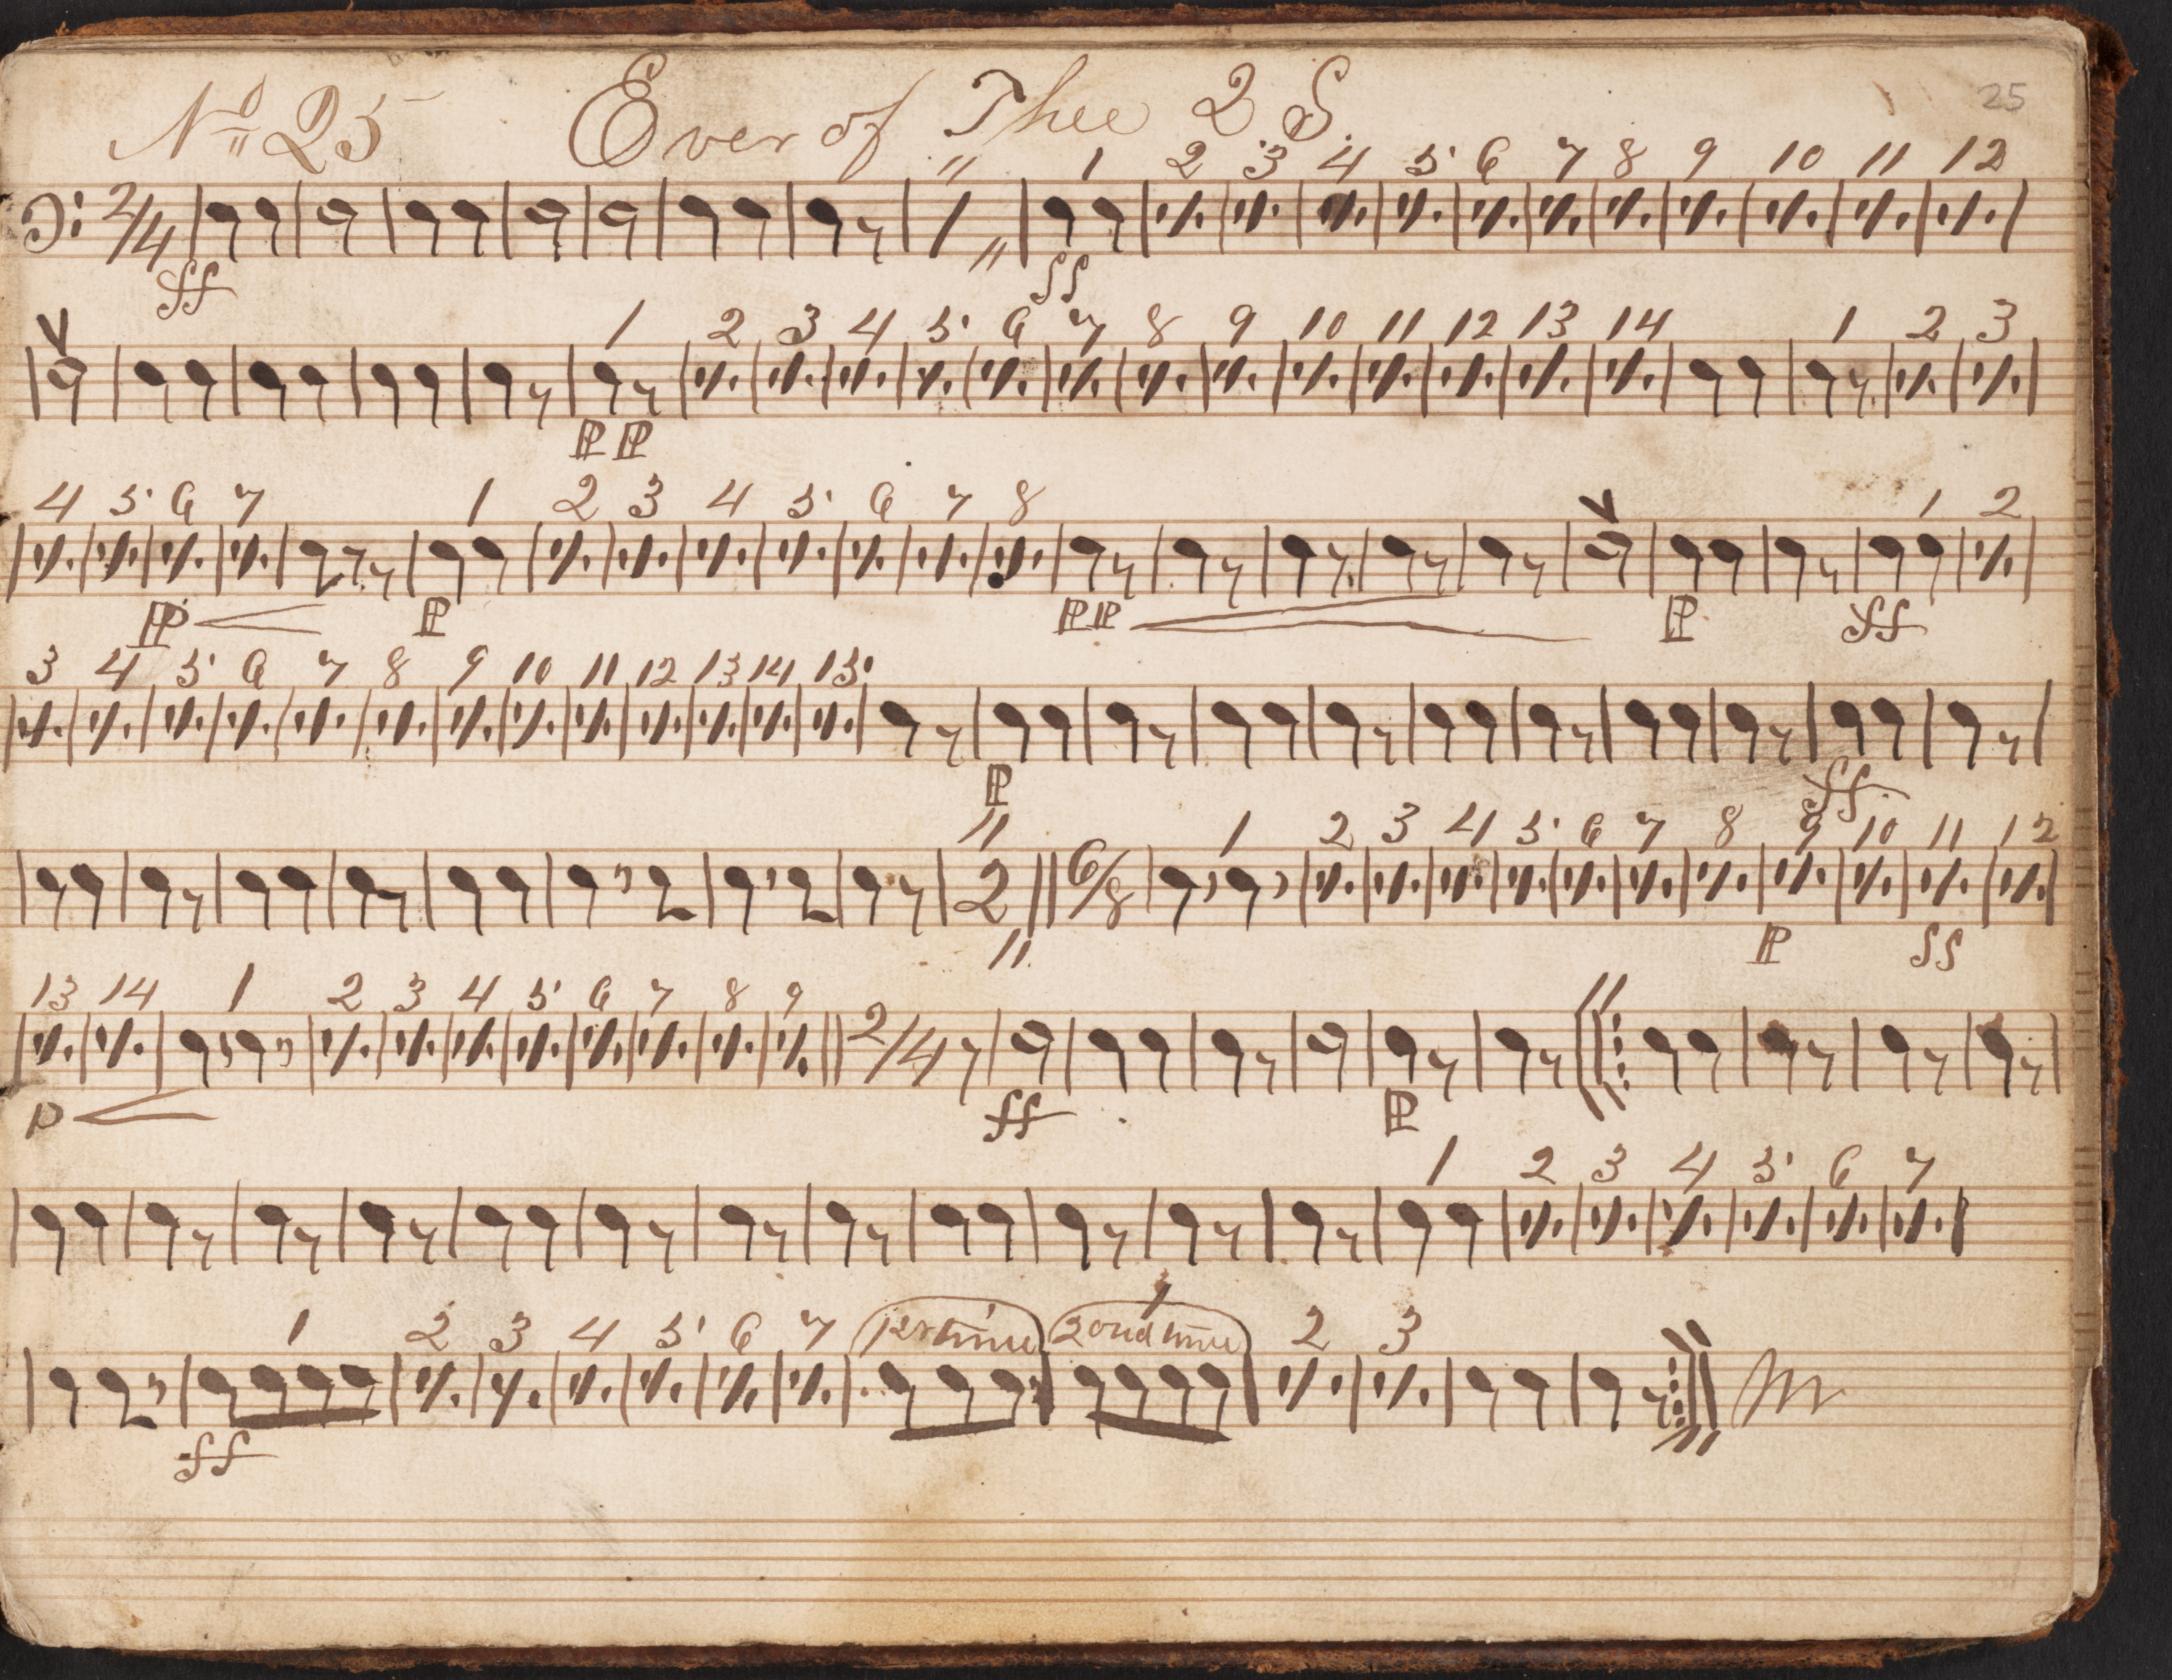 No 25 Ever of Thee 2 S 25
1 2 3 4 5 6 7 8 9 10 11 12
2/4
ff ff
1 2 3 4 5 6 7 8 9 10 11 12 13 14 1 2 3
PP
4 5 6 7 1 2 3 4 5 6 7 8 1 2
PP P PP P ff
3 4 5 6 7 8 9 10 11 12 13 14 15
P ff
1 2 3 4 5 6 7 8 9 10 11 12
2 6/8
P ff
13 14 1 2 3 4 5 6 7 8 9
2/4
p ff P
1 2 3 4 5 6 7
1 2 3 4 5 6 7 1st time 2ond time 1 2 3
ff